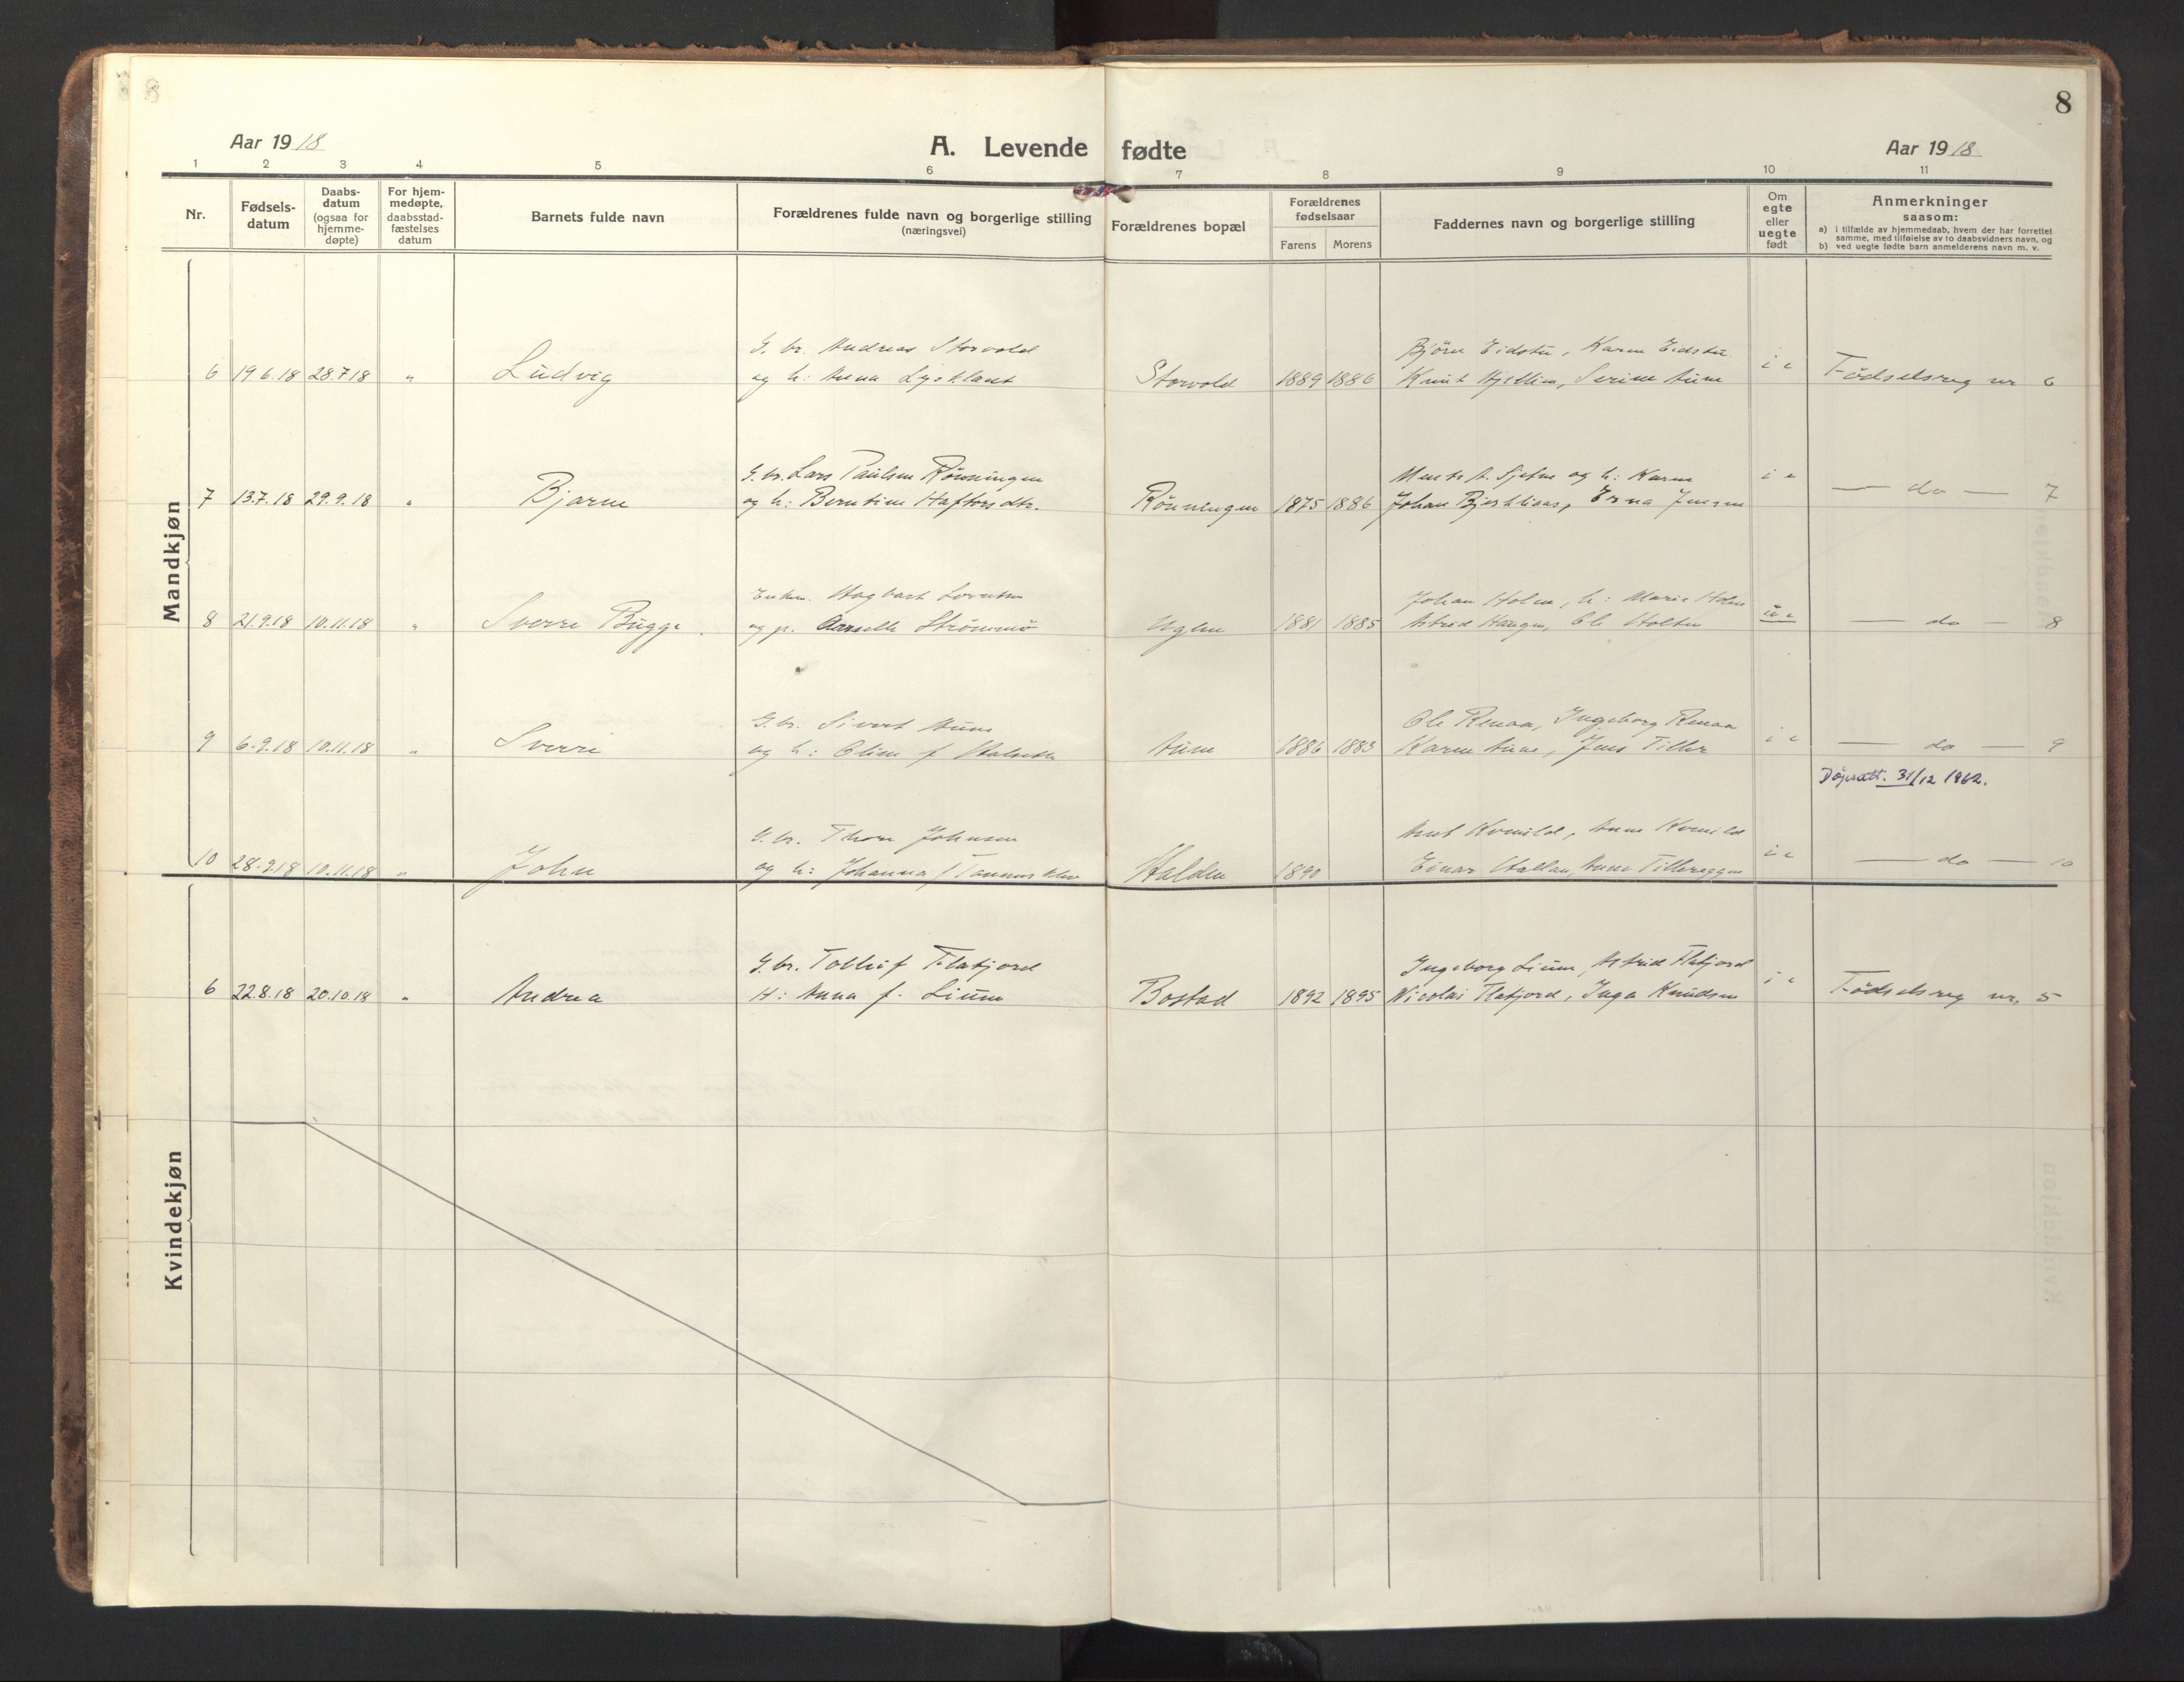 8
8
Aar 1918
A. Levende fødte
Aar 1918
1 2 3 4 5 6 7 8 9 10 11
Nr.
Fødsels-
datum
Daabs-
datum
(ogsaa for
hjemme-
døpte)
For hjem-
medøpte,
daabsstad-
fæstelses
datum
Barnets fulde navn
Forældrenes fulde navn og borgerlige stilling
(næringsvei)
Forældrenes bopæl
Forældrenes
fødselsaar
Farens Morens
Faddernes navn og borgerlige stilling
Om
egte
eller
uegte
født
Anmerkninger
saasom:
a) i tilfælde av hjemmedaab, hvem der har forrettet
samme, med tilføielse av to daabsvidners navn, og
b) ved uegte fødte barn anmelderens navn m. v.
Mandkjøn
G. br. Andreas Storvold Bjørn Eidstu, Karen Eidstu
6 19.6.18 28.7.18 " Ludvig og h: Anna Lysklæt Storvold 1889 1886 Knut Hjellien, Serine Aune i e Fødselsreg nr 6
G. br. Lars Paulsen Rønningen og h: Karen
7 13.7.18 29.9.18 " Bjarne og h: Berntine Haftorsdtr. Rønningen 1875 1886 Johan Erna Jensen i e — do — 7
Enkm. Hagbart Lorentsen Johan Holm, h: Marie Holm
8 21.9.18 10.11.18 " Sverre Bugge og p. Strømmø Uglen 1881 1885 Astrid Haugen, Ole Holten u e — do — 8
G. br. Sivert Aune Ole Renaa, Ingeborg Renaa
9 6.9.18 10.11.18 " Sverre og h: Oline f. Halseth Aune 1886 1883 Karen Aune, Jens Tiller i e — do — 9
Døpeatt. 31/12 1962.
G. br. Thore Johnsen Arnt Kvenild, Anne Kvenild
10 28.9.18 10.11.18 " John og h: Johanna f. Halden 1890 Einar Hallan, Anne Tillereggen i e — do — 10
Kvindekjøn
G. br. Tolleif Flatjord Ingeborg Lium, Astrid Flatjord
6 22.8.18 20.10.18 " Andrea H: Anna f. Lium Bostad 1892 1895 Nicolai Flatjord, Inga Knudsen i e Fødselsreg nr. 5